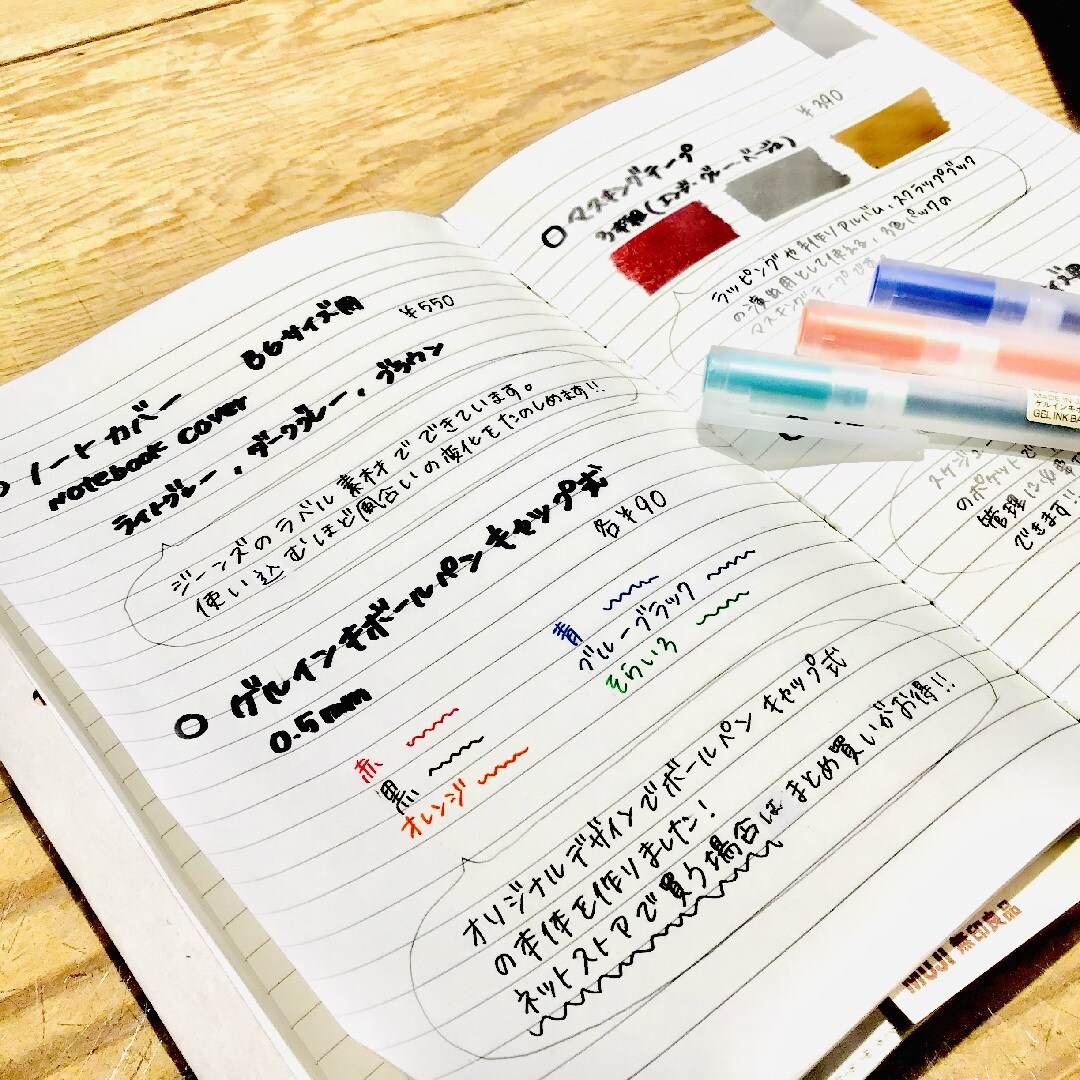 ノートカバー B6サイズ用
notebook cover ¥550
ライトグレー・ダークグレー・ブラウン
ジーンズのラベル素材でできています。
使い込むほど風合いの変化をたのしめます!!
ゲルインキボールペンキャップ式
0.5mm 各¥90
赤
黒
オレンジ
青
ブルーブラック
そらいろ
オリジナルデザインでボールペン キャップ式
の本体を作りました!
ネットストアで買う場合はまとめ買いがお得!!
¥390
マスキングテープ
ラッピングや手作りアルバム、スクラップブック
の演出用として使える、3色パックの
マスキングテープ
イズ用
スケジ
のポケットで
管理に必要
できます!!
MADE IN
ゲルインキボ
GEL INK BA
MUJI 無印良品